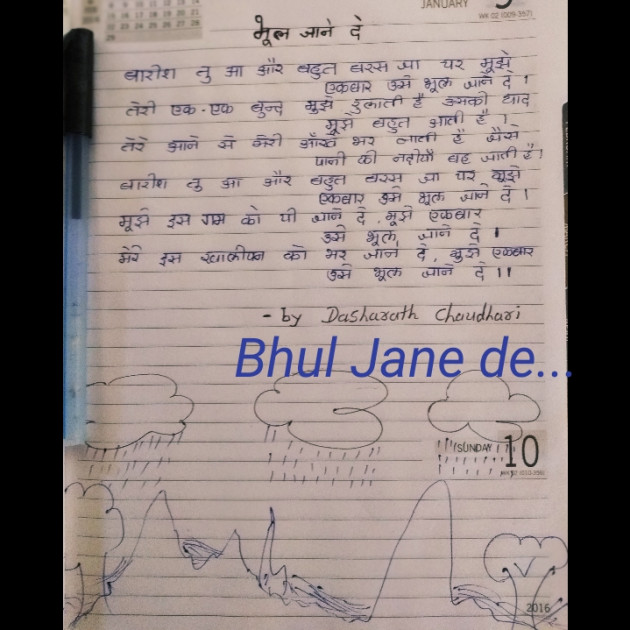 JANUARY
WK 02 (009-357)
भूल जाने दे
बारीश तु आ और बहुत बरस जा पर मुझे
एकबार उसे भूल जाने दे ।
तेरी एक-एक बुन्द मुझे रुलाती है उसकी याद
मुझे बहुत आती है ।
तेरे आने से मेरी आँखे भर जाती है जैसे
पानी की नदीयाँ बह जाती है ।
बारीश तु आ और बहुत बरस जा पर मुझे
एकबार उसे भूल जाने दे ।
मुझे इस गम को पी जाने दे, मुझे एकबार
उसे भूल जाने दे ।
मेरे इस खालीपन को भर जाने दे, मुझे एकबार
उसे भूल जाने दे ।।
- by Dasharath Chaudhari
Bhul Jane de...
SUNDAY 10
2016